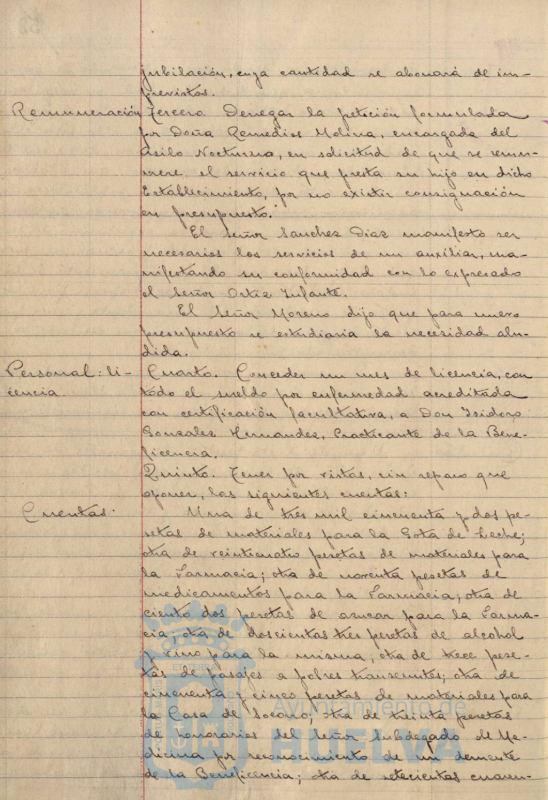 jubilación, cuya cantidad se abonará de im-
previstos.
Remuneración Tercero. Denegar la petición formulada
por Doña Remedios Molina, encargada del
Asilo Nocturno, en solicitud de que se remu-
nere el servicio que presta su hijo en dicho
Establecimiento, por no existir consignación
en presupuesto.
El Señor Sanchez Diaz manifesto ser
necesarios los servicios de un auxiliar, ma-
nifestando su conformidad con lo expresado
el Señor Ortiz Infante.
El Señor Moreno dijo que para nuevo
presupuesto se estudiaria la necesidad alu-
dida.
Personal: li-
cencia
Cuarto. Conceder un mes de licencia, con
todo el sueldo por enfermedad acreditada
con certificación facultativa, a Don Isidoro
Gonzalez Hernandez, Practicante de la Bene-
ficencia.
Quinto. Tener por vistas, sin reparo que
oponer, las siguientes cuentas:
Cuentas.
Una de tres mil cincuenta y dos pe-
setas de materiales para la Gota de Leche;
otra de veinticuatro pesetas de materiales para
la Farmacia; otra de noventa pesetas de
medicamentos para la Farmacia; otra de
ciento dos pesetas de azucar para la Farma-
cia; otra de doscientas tres pesetas de alcohol
y vino para la misma; otra de trece pese-
tas de pasajes a pobres transeuntes; otra de
cincuenta y cinco pesetas de materiales para
la Casa de Socorro; otra de treinta pesetas
de honorarios del Señor Subdegado de Me-
dicina por reconocimiento de un demente
de la Beneficencia; otra de setecientas cuaren-
Ayuntamiento de
HUELVA